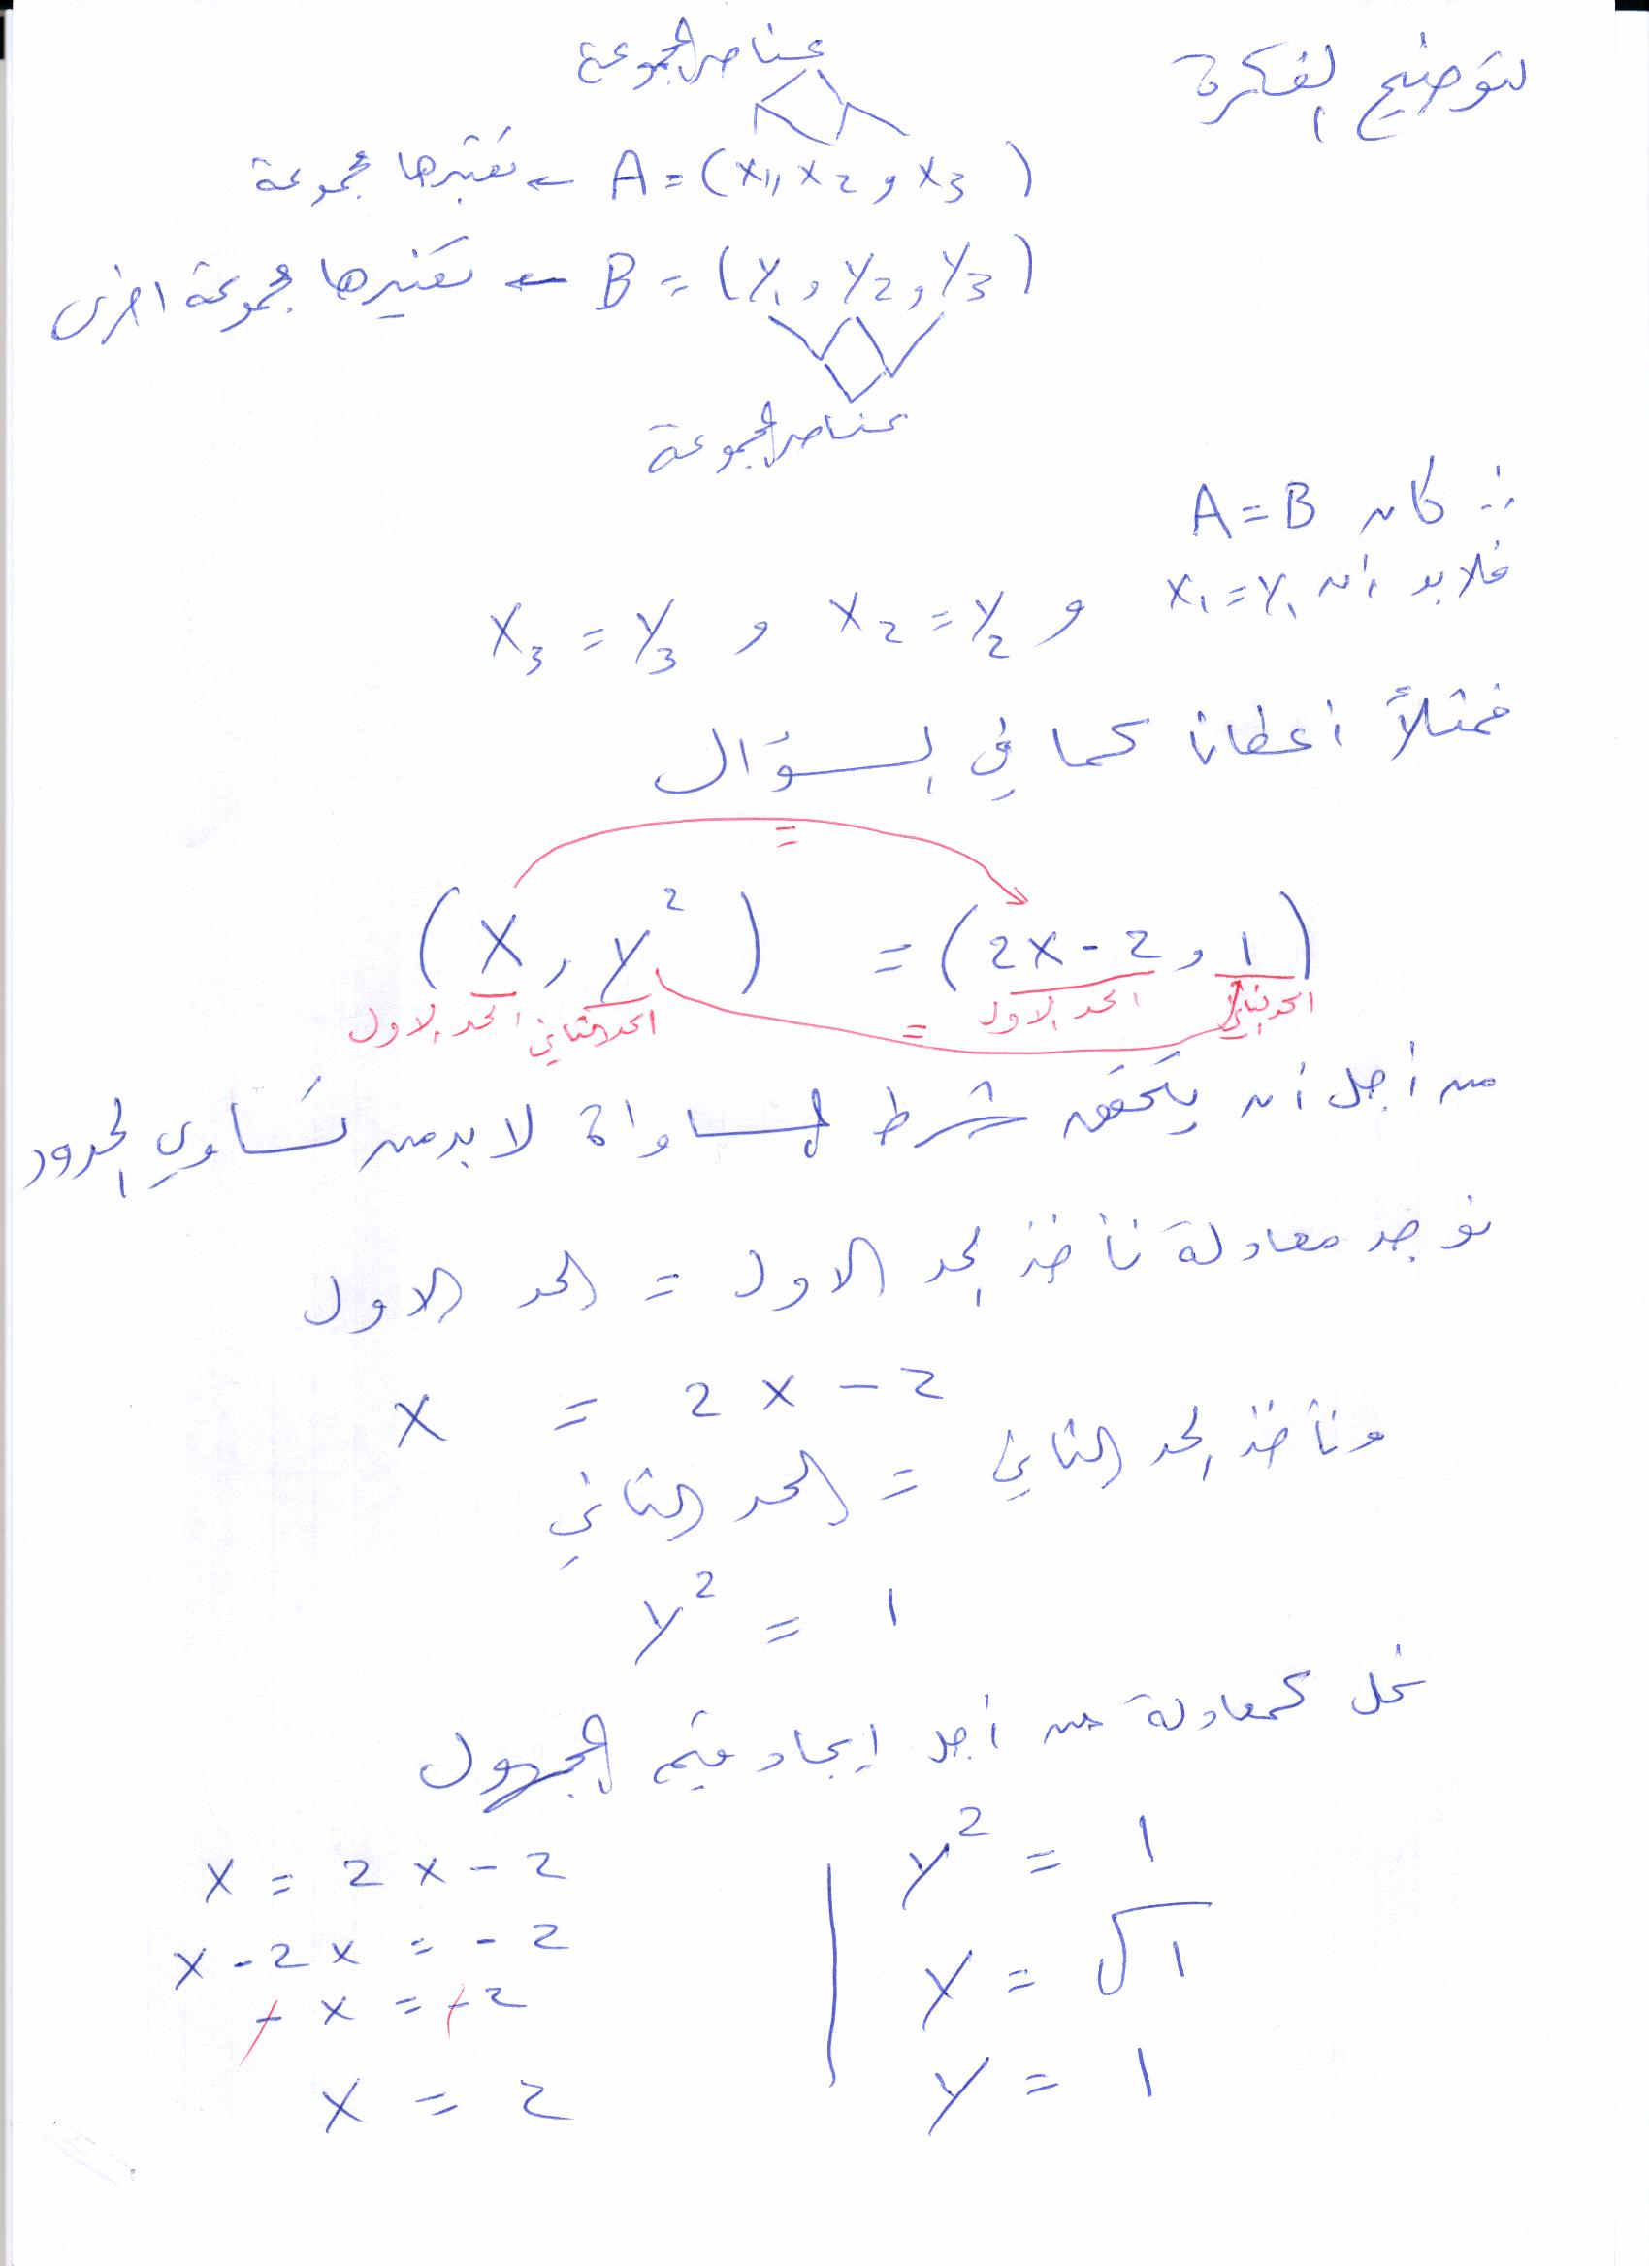 لتوضيح الفكرة
عناصر المجموعة
A = (x1, x2 و x3) ← نعتبرها مجموعة
B = (y1 و y2 و y3) ← نعتبرها مجموعة اخرى
عناصر المجموعة
كان A = B
فلابد ان x1 = y1 و x2 = y2 و x3 = y3
فمثلاً أعطانا كما في السؤال
=
(x , y²) = (2x - 2 و 1)
الحد الاول الحد الثاني = الحد الاول الحد الثاني
من أجل أن يتحقق شرط المساواة لا بد من تساوي الحدود
نوجد معادلة نأخذ الحد الاول = الحد الاول
x = 2x - 2
ونأخذ الحد الثاني = الحد الثاني
y² = 1
نحل كمعادلة من أجل ايجاد قيم المجهول
x = 2x - 2
x - 2x = - 2
- x = - 2
x = 2
y² = 1
y = √1
y = 1